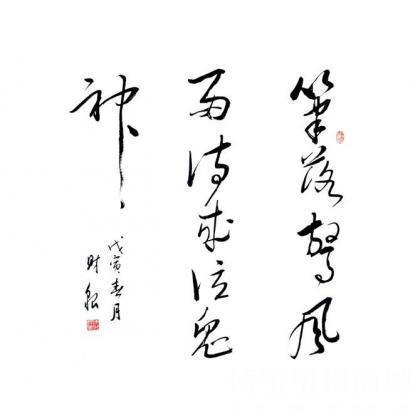 笔落惊风
雨诗成泣鬼
神
戊寅春月
财